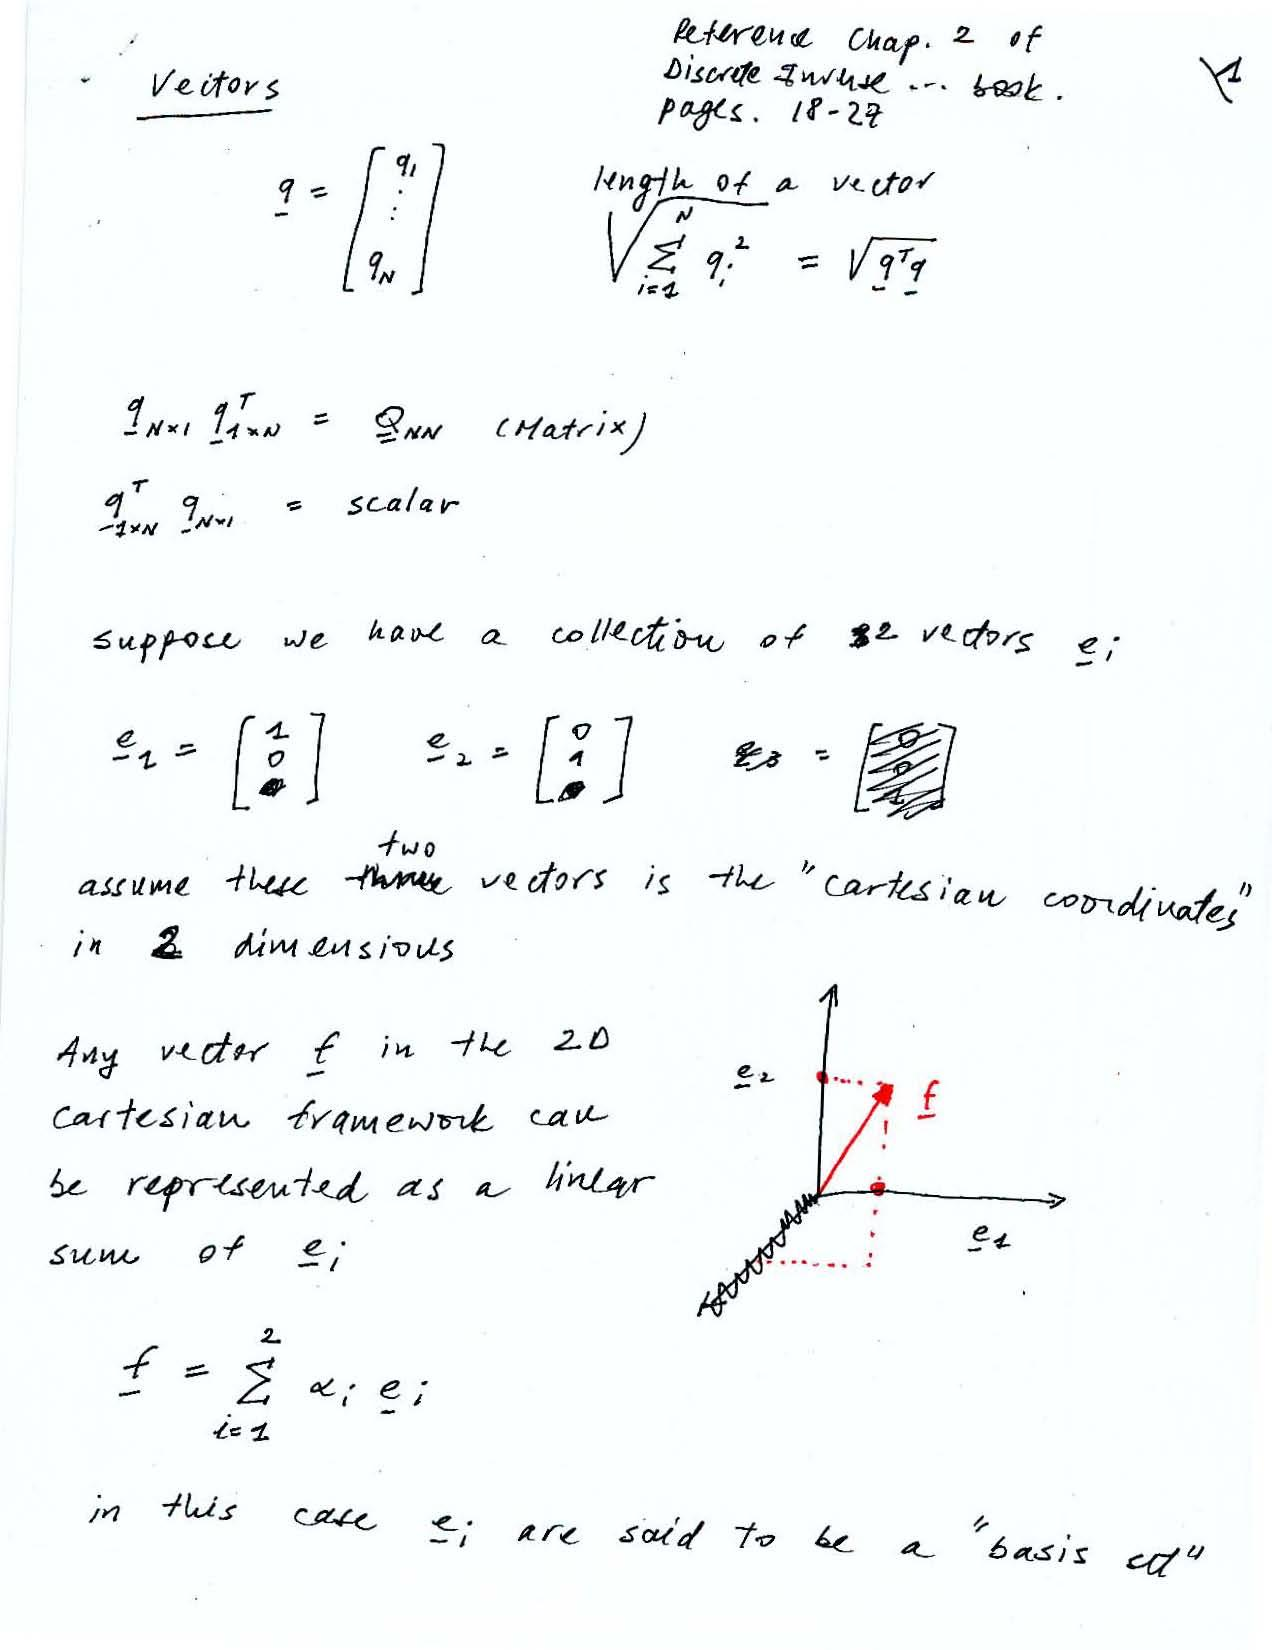 Reference Chap. 2 of
Discrete Inverse ... book.
pages. 18-27
1
Vectors
q = [q1 ⋮ qN]
length of a vector
√(∑_{i=1}^{N} q_i^2) = √(q^T q)
q_{N×1} q^T_{1×N} = Q_{NN} (Matrix)
q^T_{1×N} q_{N×1} = scalar
suppose we have a collection of 2 vectors e_i
e_1 = [1 0] e_2 = [0 1] e_3 = [0 0 1]
two
assume these three vectors is the "cartesian coordinates"
in 2 dimensions
Any vector f in the 2D
cartesian framework can
be represented as a linear
sum of e_i
e_2
f
e_1
f = ∑_{i=1}^{2} α_i e_i
in this case e_i are said to be a "basis set"